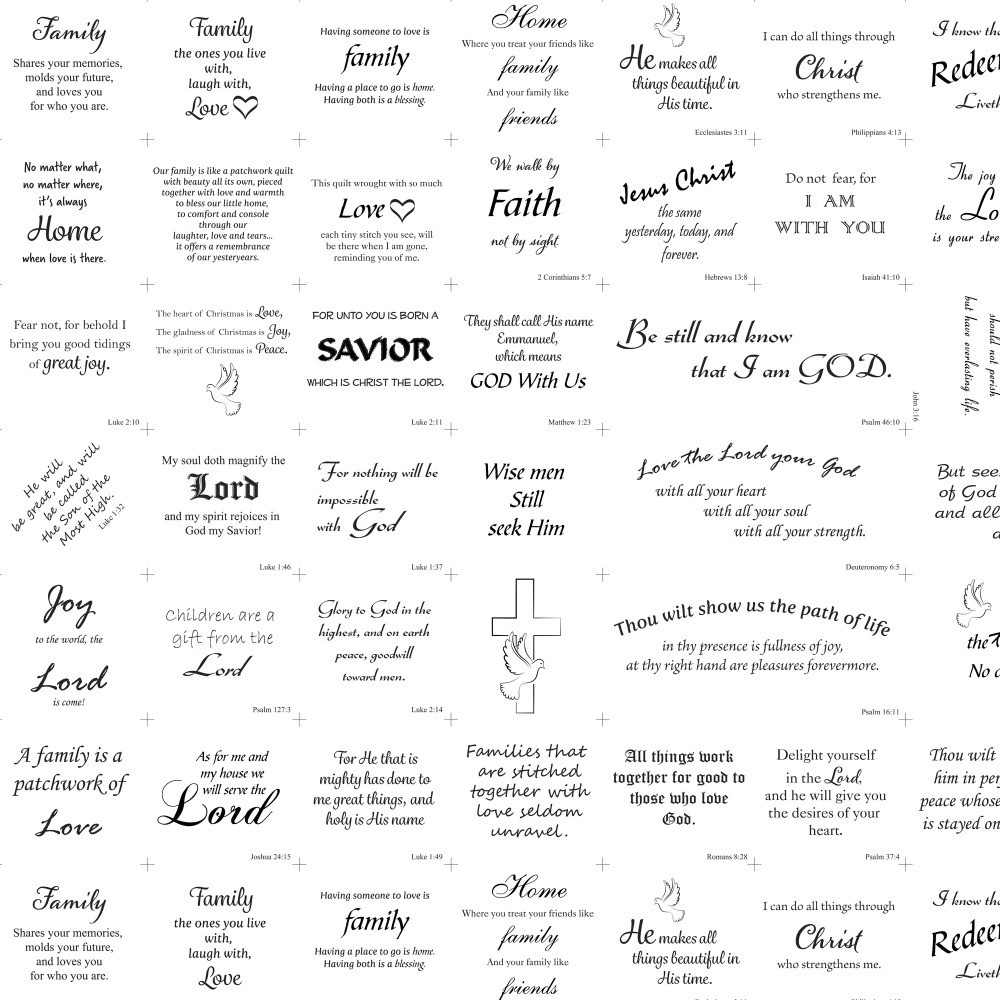 Family
Shares your memories,
molds your future,
and loves you
for who you are.
Family
the ones you live
with,
laugh with,
Love
Having someone to love is
family
Having a place to go is home.
Having both is a blessing.
Home
Where you treat your friends like
family
And your family like
friends
He makes all
things beautiful in
His time.
Ecclesiastes 3:11
I can do all things through
Christ
who strengthens me.
Philippians 4:13
I know
Liveth
No matter what,
no matter where,
it's always
Home
when love is there.
Our family is like a patchwork quilt
with beauty all its own, pieced
together with love and warmth
to bless our little home,
to comfort and console
through our
laughter, love and tears...
it offers a remembrance
of our yesteryears.
This quilt wrought with so much
Love
each tiny stitch you see, will
be there when I am gone,
reminding you of me.
We walk by
Faith
not by sight.
2 Corinthians 5:7
Jesus Christ
the same
yesterday, today, and
forever.
Hebrews 13:8
Do not fear, for
I AM
WITH YOU
Isaiah 41:10
The joy
the
is your
Fear not, for behold I
bring you good tidings
of great joy.
Luke 2:10
The heart of Christmas is Love,
The gladness of Christmas is Joy,
The spirit of Christmas is Peace.
FOR UNTO YOU IS BORN A
SAVIOR
WHICH IS CHRIST THE LORD.
Luke 2:11
They shall call His name
Emmanuel,
which means
GOD With Us
Matthew 1:23
Be still and know
that I am GOD.
Psalm 46:10
should not perish
but have everlasting life.
John 3:16
He will
be great, and will
be called
the Son of the
Most High.
Luke 1:32
My soul doth magnify the
Lord
and my spirit rejoices in
God my Savior!
Luke 1:46
For nothing will be
impossible
with God
Luke 1:37
Wise men
Still
seek Him
Love the Lord your God
with all your heart
with all your soul
with all your strength.
Deuteronomy 6:5
But
of God
and all
Joy
to the world, the
Lord
is come!
Children are a
gift from the
Lord
Psalm 127:3
Glory to God in the
highest, and on earth
peace, goodwill
toward men.
Luke 2:14
Thou wilt show us the path of life
in thy presence is fullness of joy,
at thy right hand are pleasures forevermore.
Psalm 16:11
the
No
A family is a
patchwork of
Love
As for me and
my house we
will serve the
Lord
Joshua 24:15
For He that is
mighty has done to
me great things, and
holy is His name
Luke 1:49
Families that
are stitched
together with
love seldom
unravel.
All things work
together for good to
those who love
God.
Romans 8:28
Delight yourself
in the Lord,
and he will give you
the desires of your
heart.
Psalm 37:4
Thou wilt
him in
peace whose
is stayed on
Family
Shares your memories,
molds your future,
and loves you
for who you are.
Family
the ones you live
with,
laugh with,
Love
Having someone to love is
family
Having a place to go is home.
Having both is a blessing.
Home
Where you treat your friends like
family
And your family like
friends
He makes all
things beautiful in
His time.
I can do all things through
Christ
who strengthens me.
I know
Liveth